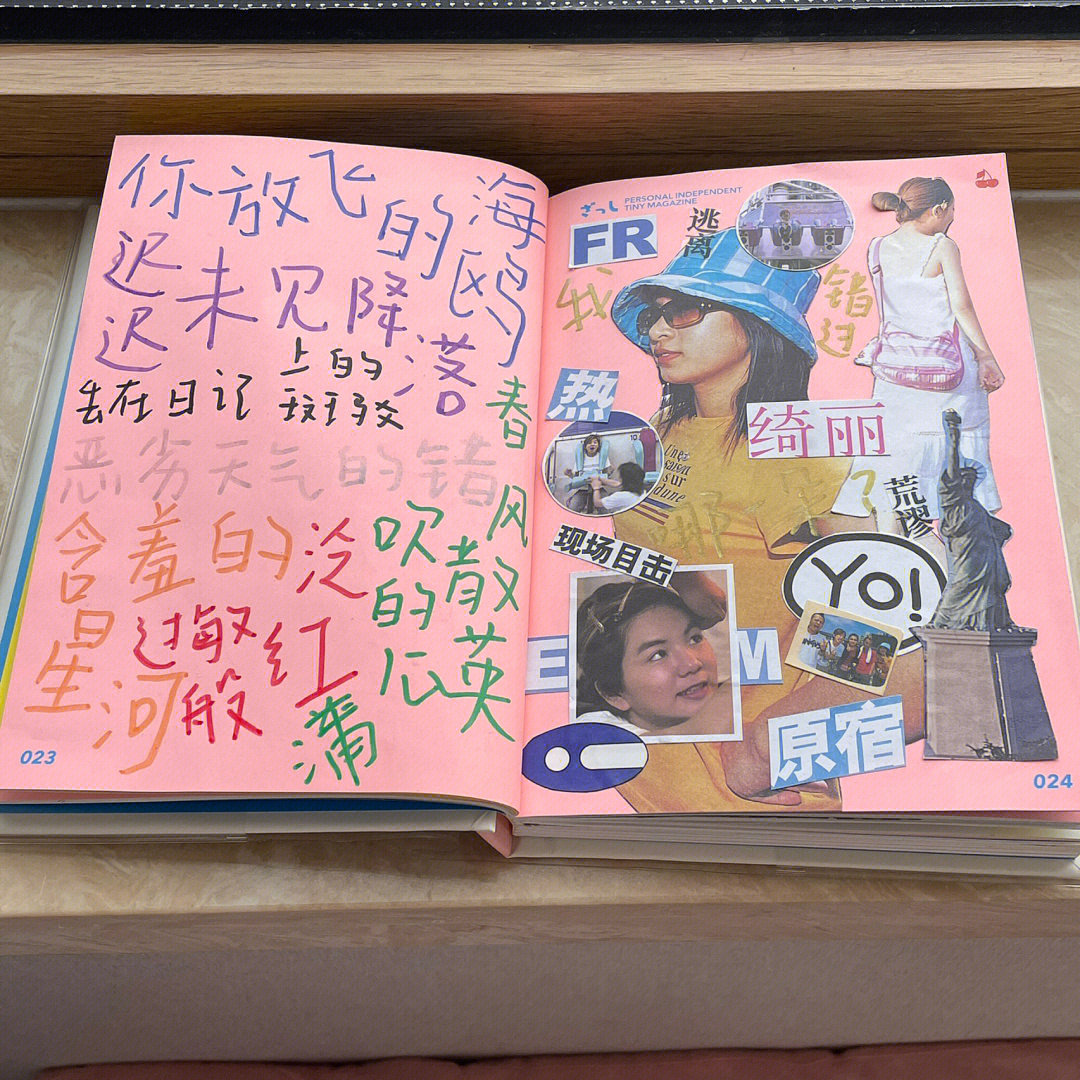 你放飞的海鸥
迟迟未见降落
去在日记上的斑驳
恶劣天气的错
含羞的星河
泛红
过敏般
春风吹散的蒲公英
023
ざっし
PERSONAL INDEPENDENT
TINY MAGAZINE
FR
逃离
我
错过
热
绮丽
Une
saison
sur
dune
哪一
?
荒谬
现场目击
Yo!
E
M
原宿
024